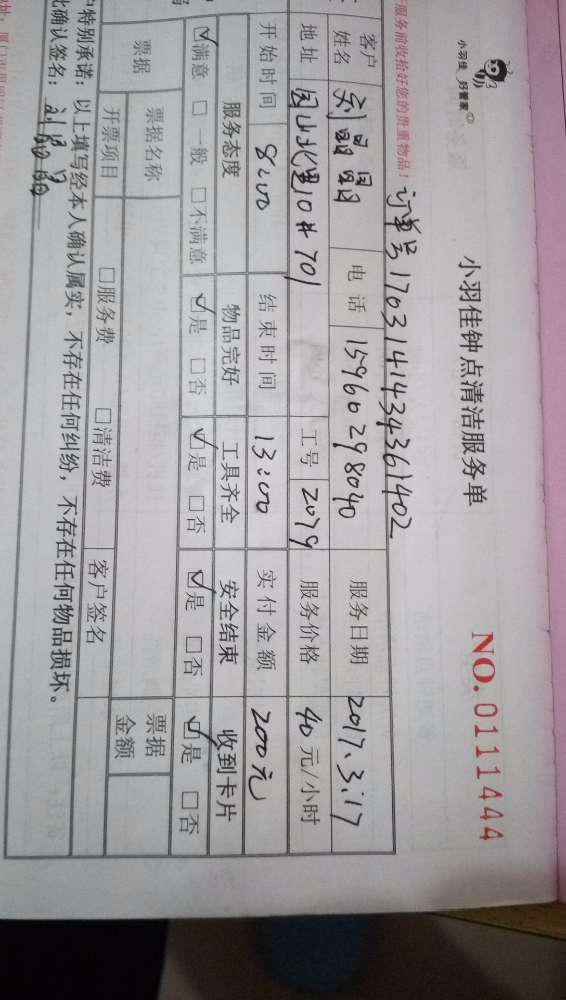 小羽佳 好管家
小羽佳钟点清洁服务单
NO. 0111444
服务前收拾好您的贵重物品！
订单号170314143436l402
客户姓名 刘晶晶 电话 15960298040 服务日期 2017.3.17
地址 10#701 工号 2079 服务价格 40元/小时
开始时间 8:00 结束时间 13:00 实付金额 200元
服务态度 物品完好 工具齐全 安全结束 收到卡片
☑满意 □一般 □不满意 ☑是 □否 ☑是 □否 ☑是 □否 ☑是 □否
票据 票据名称 票据金额
开票项目 □服务费 □清洁费 客户签名
特别承诺：以上填写经本人确认属实，不存在任何纠纷，不存在任何物品损坏。
确认签名：刘晶晶